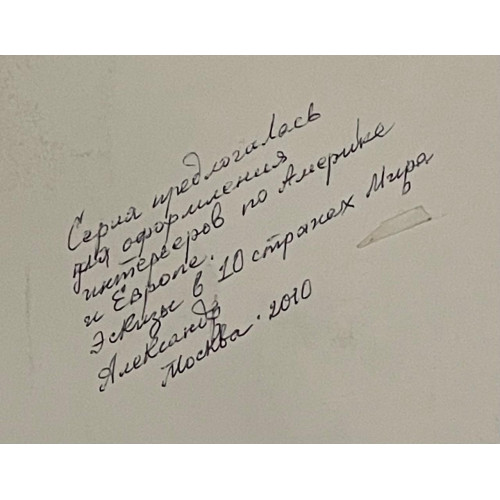 Серия предлогалась
для оформления
интерьеров по Америке
и Европе.
Эскизы в 10 странах Мира
Александр
Москва. 2010